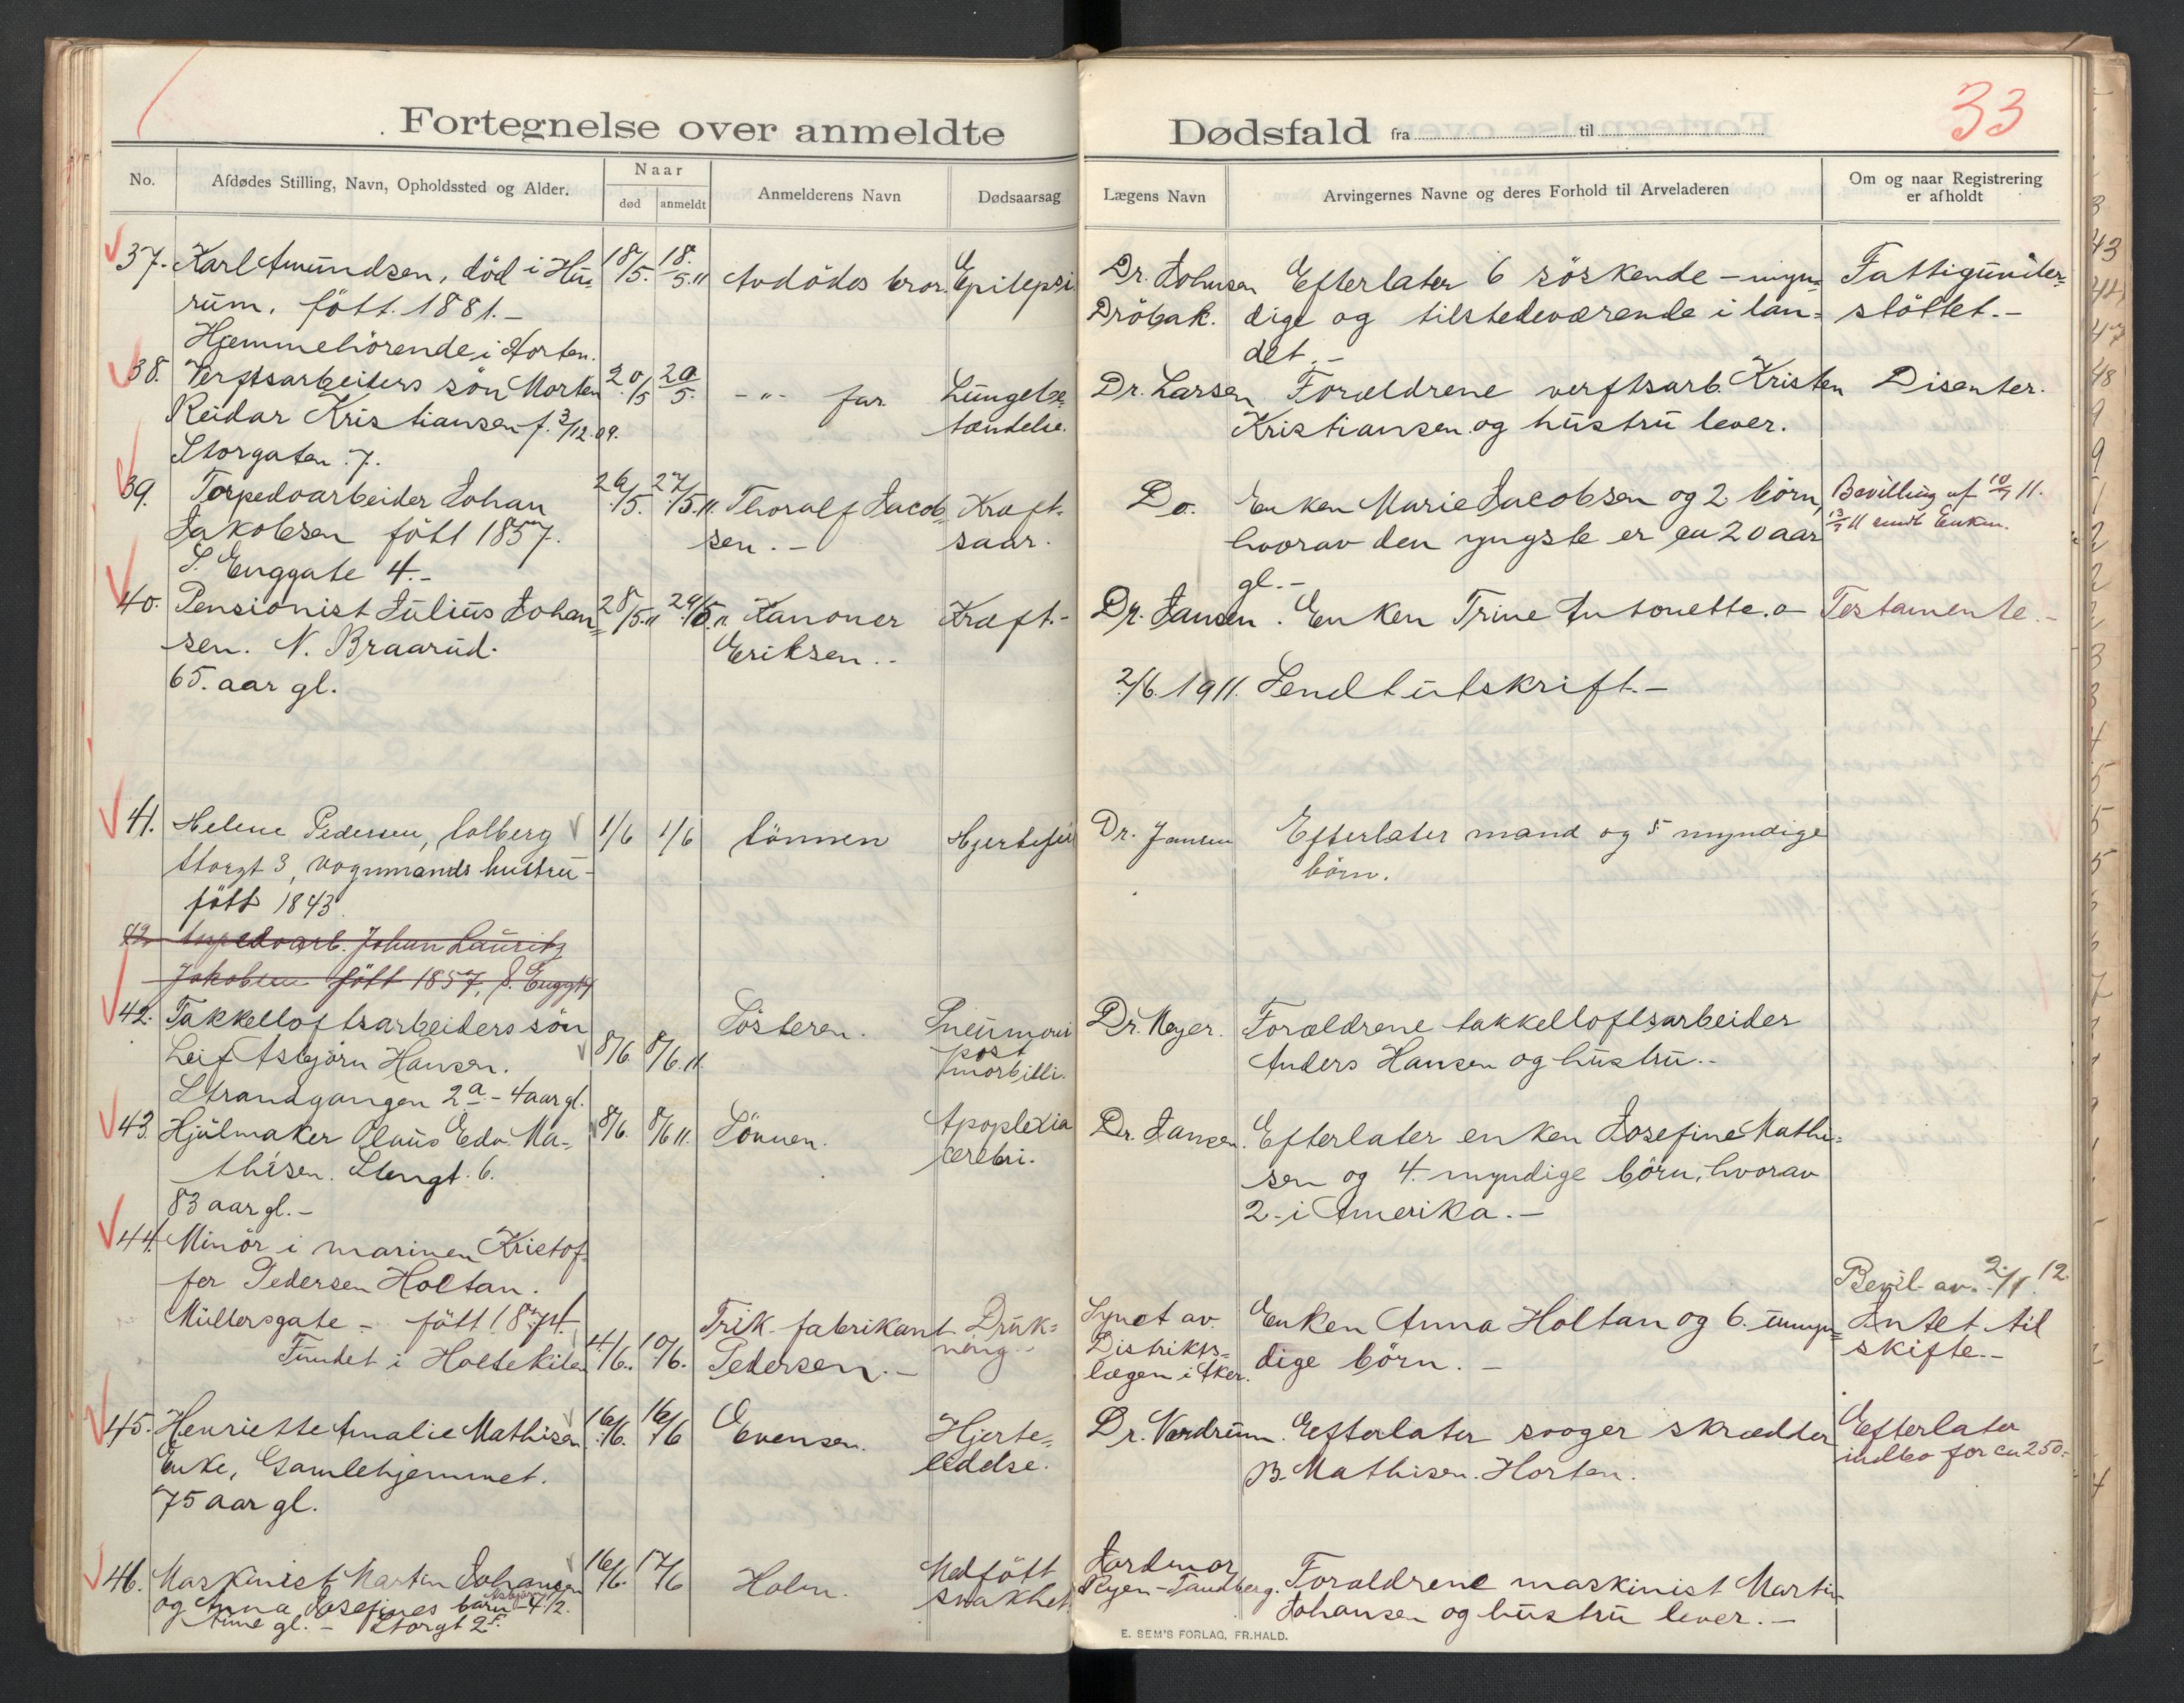 33
Fortegnelse over anmeldte Dødsfald fra til
No. Afdødes Stilling, Navn, Opholdssted og Alder. Naar død anmeldt Anmelderens Navn Dødsaarsag Lægens Navn Arvingernes Navne og deres Forhold til Arveladeren Om og naar Registrering er afholdt
37. Karl Amundsen, död i Hu- 18/5. 18/5. 11 Avdödes bror. Epilepsi Dr. Johnsen Efterlater 6 söskende – myn- Fattigunder-
rum. fött. 1881.– Dröbak. dige og tilstedeværende i lan- støttet.–
Hjemmehörende i Horten. det.–
38. Verftsarbeiders sön Morten 20/5 20/5. –"– far Lungebe- Dr. Larsen Forældrene verftsarb. Kristen Disenter.
Reidar Kristiansen f. 3/12.09. tændelse. Kristiansen og hustru lever.
Storgaten 7.
39. Torpedoarbeider Johan 26/5. 27/5. 11. Thoralf Jacob- Kræft- Do. Enken Marie Jacobsen og 2 börn, Bevilling af 10/7 11.
Jakobsen fött 1857. sen.– saar. hvorav den yngste er ca 20 aar 13/7 11 sendt Enken.
S. Enggate 4.– gl.–
40. Pensionist Julius Johan- 28/5. 11 29/5. 11 Kanoner Kræft.– Dr. Jansen. Enken Trine Antonette. o– Testamente.–
sen. N. Braarud. Eriksen.–
65. aar gl. 2/6. 1911. Sendt utskrift.–
41. Helene Pedersen, Solberg 1/6 1/6 Sönnen Hjertefeil Dr. Jansen Efterlater mand og 5 myndige
Storgt 3, vognmands hustru– börn.
fött 1843
42 torpedoarb. Johan Lauritz
Jakobsen fött 1857, S. Enggt 4
42. Takkelloftsarbeiders sön Søsteren. Pneumoni Dr. Meyer. Forældrene takkelloftsarbeider
Leif Asbjörn Hansen. 8/6. 8/6. 11. post morbilli. Anders Hansen og hustru.–
Strandgangen 2a.– 4 aar gl.
43. Hjulmaker Olaus Edv. Ma- 8/6. 8/6 11. Sönnen. Apoplexia Dr. Jansen. Efterlater enken Josefine Mathi-
thisen. Stengt. 6. cerebri. sen og 4. myndige börn, hvorav
83 aar gl.– 2– i Amerika.–
44. Minör i marinen Kristof-
fer Pedersen Holtan. Bevil. av. 2/1. 12.
Müllersgate – fött 1874. Trik. fabrikant Druk- Synet av Enken Anna Holtan og 6. umyn- Intet til
Fundet i Holtekilen 4/6. 10/6. Pedersen.– ning.– Distrikts- dige börn.– skifte.–
lægen i Aker.
45. Henriette Amalie Mathisen 16/6. 16/6 Evensen. Hjerte- Dr. Nordrum. Efterlater svoger skrædder Efterlater
Enke, Gamlehjemmet. lidelse. B. Mathisen. Horten. indbo for ca 250.–
75 aar gl.
46. Maskinist Martin Johansen 16/6. 17/6 Holm. Medfött Jordmor Forældrene maskinist Martin
og Anna Josefines barn Asbjörn – 4 1/2 svakhet. Ryen–Tandberg. Johansen og hustru lever.–
time gl.– Storgt 2
E. SEM'S FORLAG, FR.HALD.